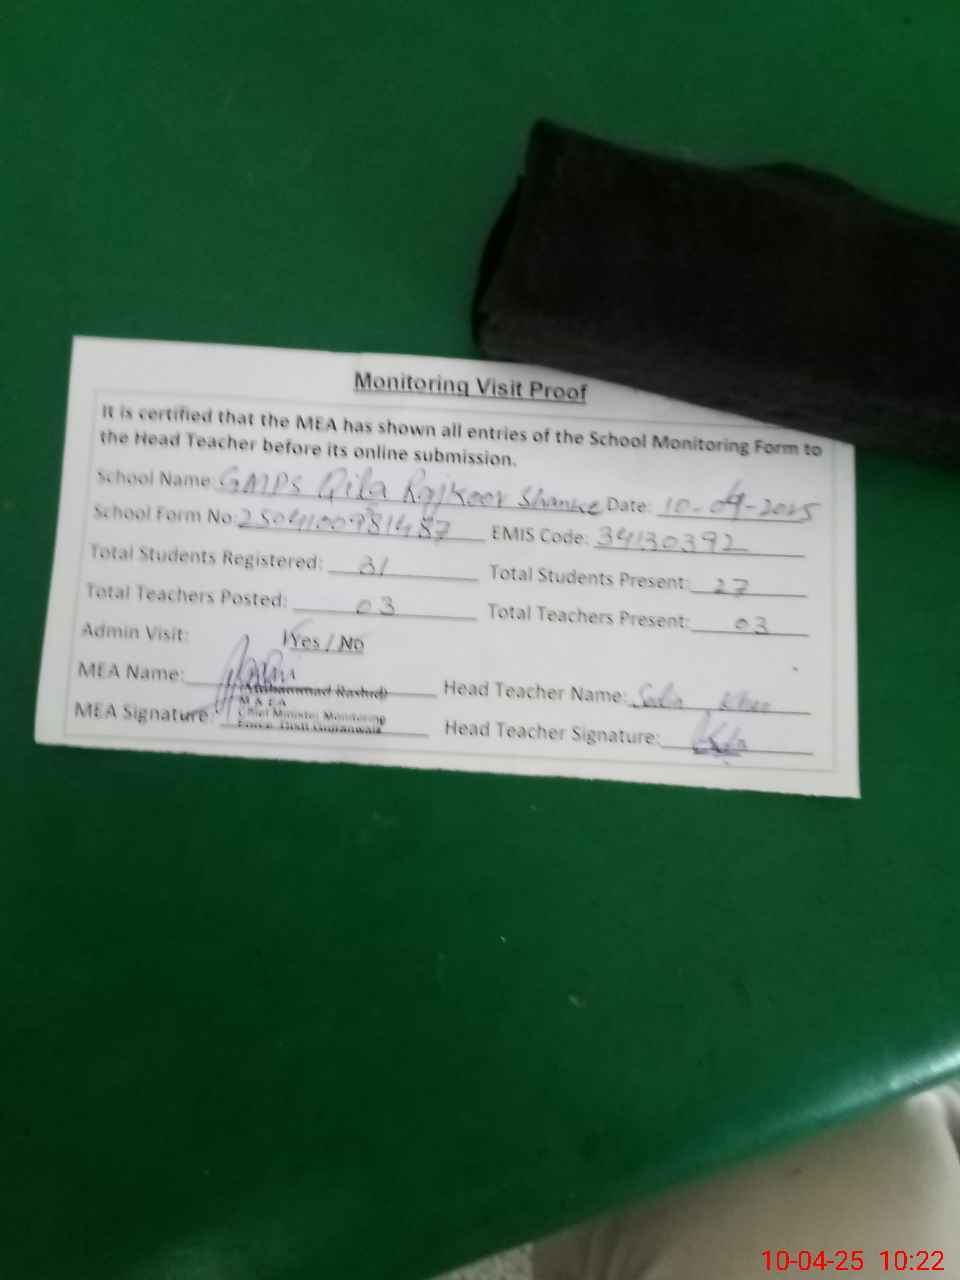 Monitoring Visit Proof
It is certified that the MEA has shown all entries of the School Monitoring Form to
the Head Teacher before its online submission.
School Name: GMPS Qila Rajkoor Shanke Date: 10-04-2025
School Form No: EMIS Code: 34130392
Total Students Registered: 31 Total Students Present: 27
Total Teachers Posted: 03 Total Teachers Present: 03
Admin Visit: Yes / No
MEA Name: (Muhammad Rashid) Head Teacher Name:
M & EA
Chief Minister Monitoring
MEA Signature: Head Teacher Signature:
10-04-25 10:22